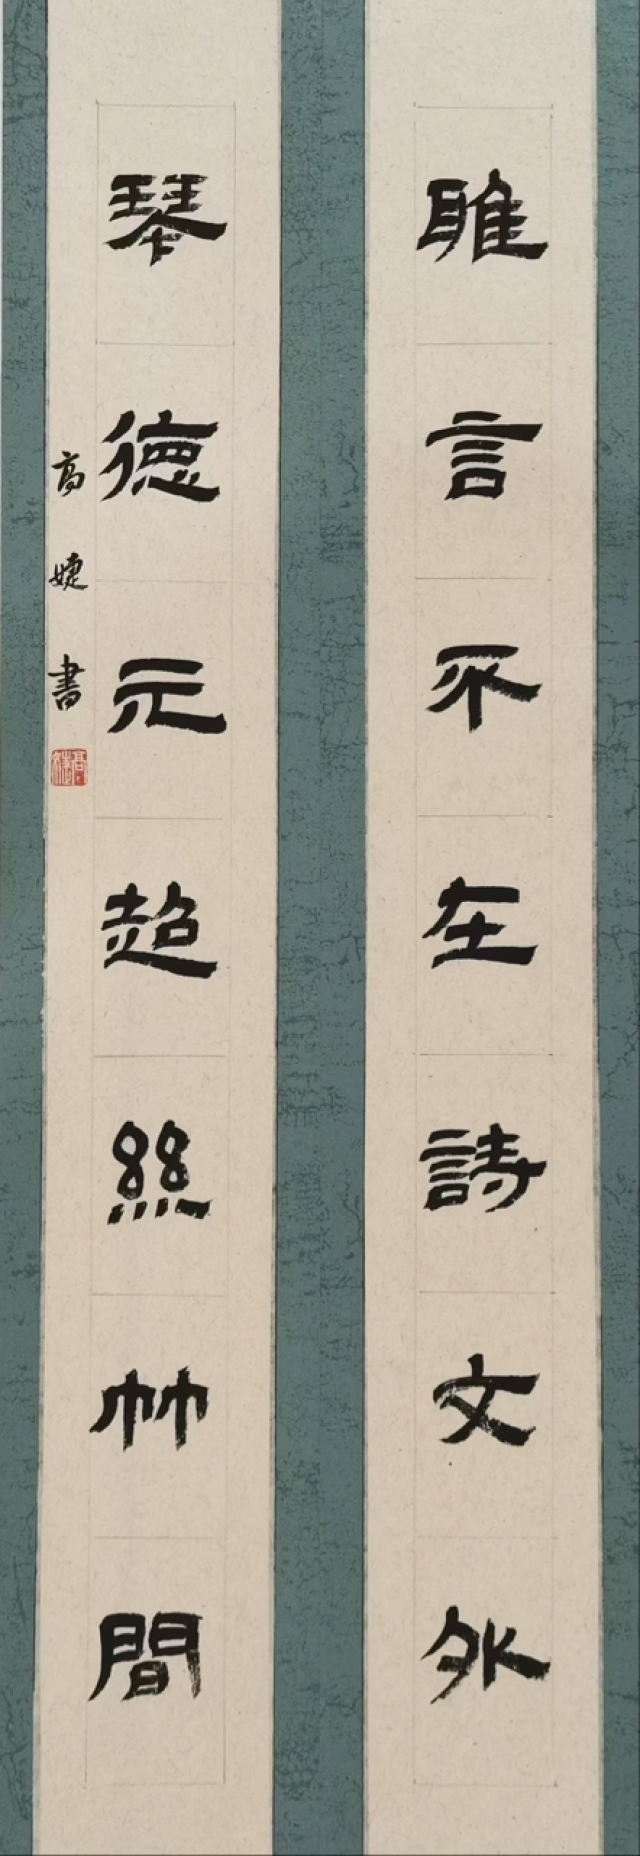 雅言不在詩文外
琴德元超絲竹間
高婕書
高婕